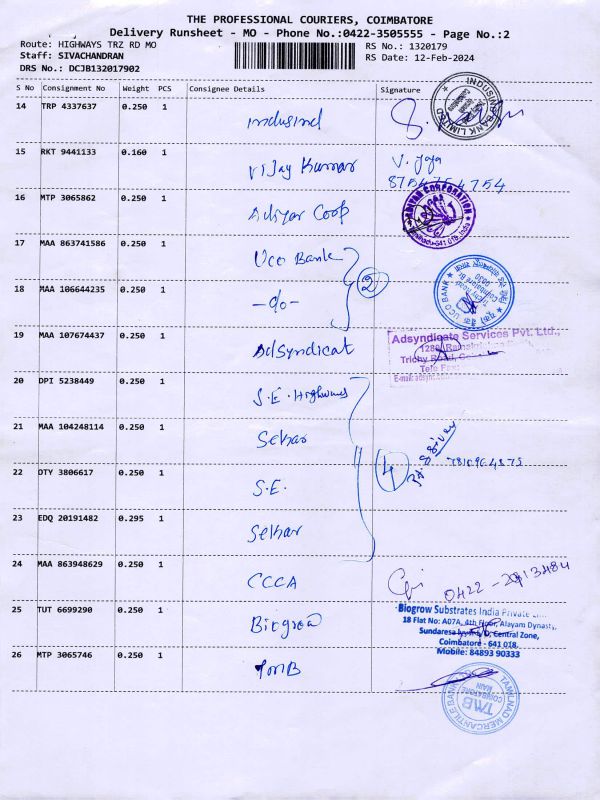 THE PROFESSIONAL COURIERS, COIMBATORE
Delivery Runsheet - MO - Phone No.:0422-3505555 - Page No.:2
Route: HIGHWAYS TRZ RD MO
RS No.: 1320179
Staff: SIVACHANDRAN
RS Date: 12-Feb-2024
DRS No.: DCJB132017902
S No Consignment No Weight PCS Consignee Details Signature
14 TRP 4337637 0.250 1 Indusind
INDUSIND BANK LIMITED
15 RKT 9441133 0.160 1 Vijay Kumar V. Jaya
8754754754
16 MTP 3065862 0.250 1 Adiyar Coop
ADIYAR CORPORATION
641 018, India
17 MAA 863741586 0.250 1 Uco Bank
2
18 MAA 106644235 0.250 1 -do-
UCO BANK
19 MAA 107674437 0.250 1 AdSyndicat
Adsyndicate Services Pvt. Ltd.,
Trichy Road,
Tele Fax:
20 DPI 5238449 0.250 1 S.E. Highways
21 MAA 104248114 0.250 1 Sekar
4
22 DTY 3806617 0.250 1 S.E.
23 EDQ 20191482 0.295 1 Sekar
24 MAA 863948629 0.250 1 CCCA
25 TUT 6699290 0.250 1 Biogrow
Biogrow Substrates India Private
18 Flat No: A07A, 4th Floor, Alayam Dynasty,
Central Zone,
Coimbatore - 641 018.
Mobile: 84893 90333
26 MTP 3065746 0.250 1 TMB
TAMILNAD MERCANTILE BANK
TMB
COIMBATORE
MAIN